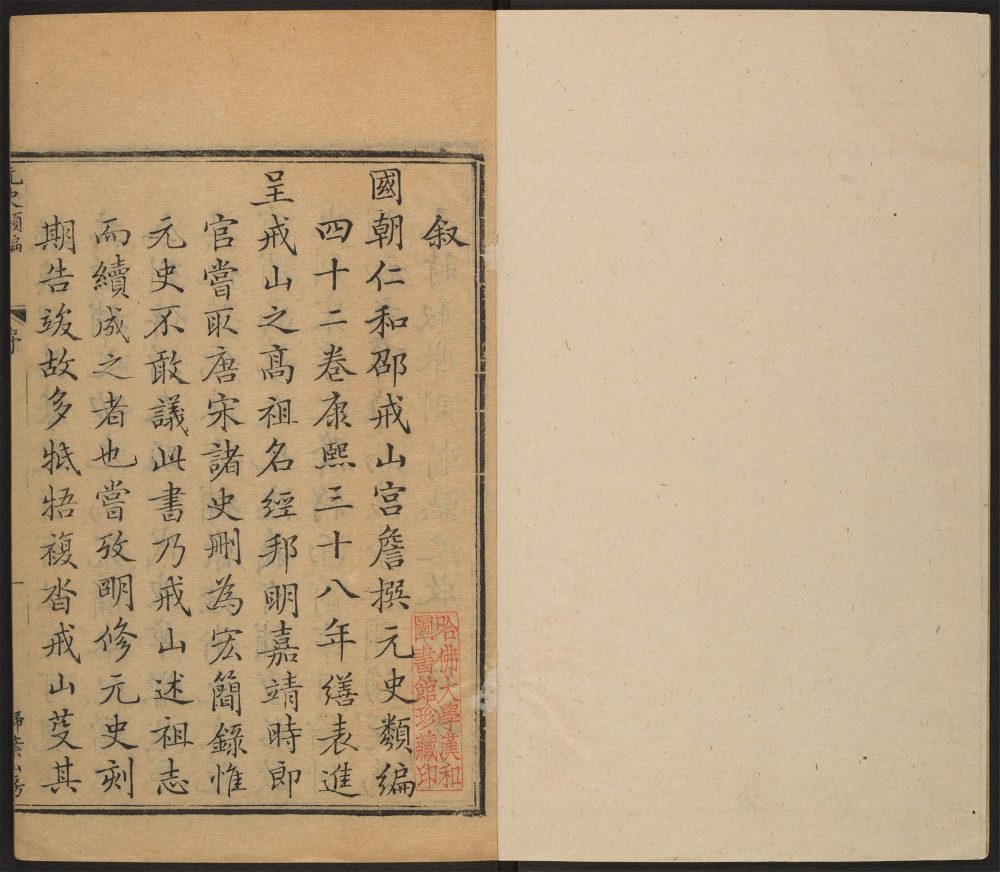 叙
國朝仁和邵戒山宫詹撰元史類編
四十二卷康熙三十八年繕表進
呈戒山之髙祖名經邦明嘉靖時郎
官嘗取唐宋諸史刪為宏簡錄惟
元史不敢議此書乃戒山述祖志
而續成之者也嘗攷明修元史刻
期告竣故多牴牾複沓戒山芟其
元史類編
序
一
掃葉山房
哈佛大學漢和
圖書館珍藏印